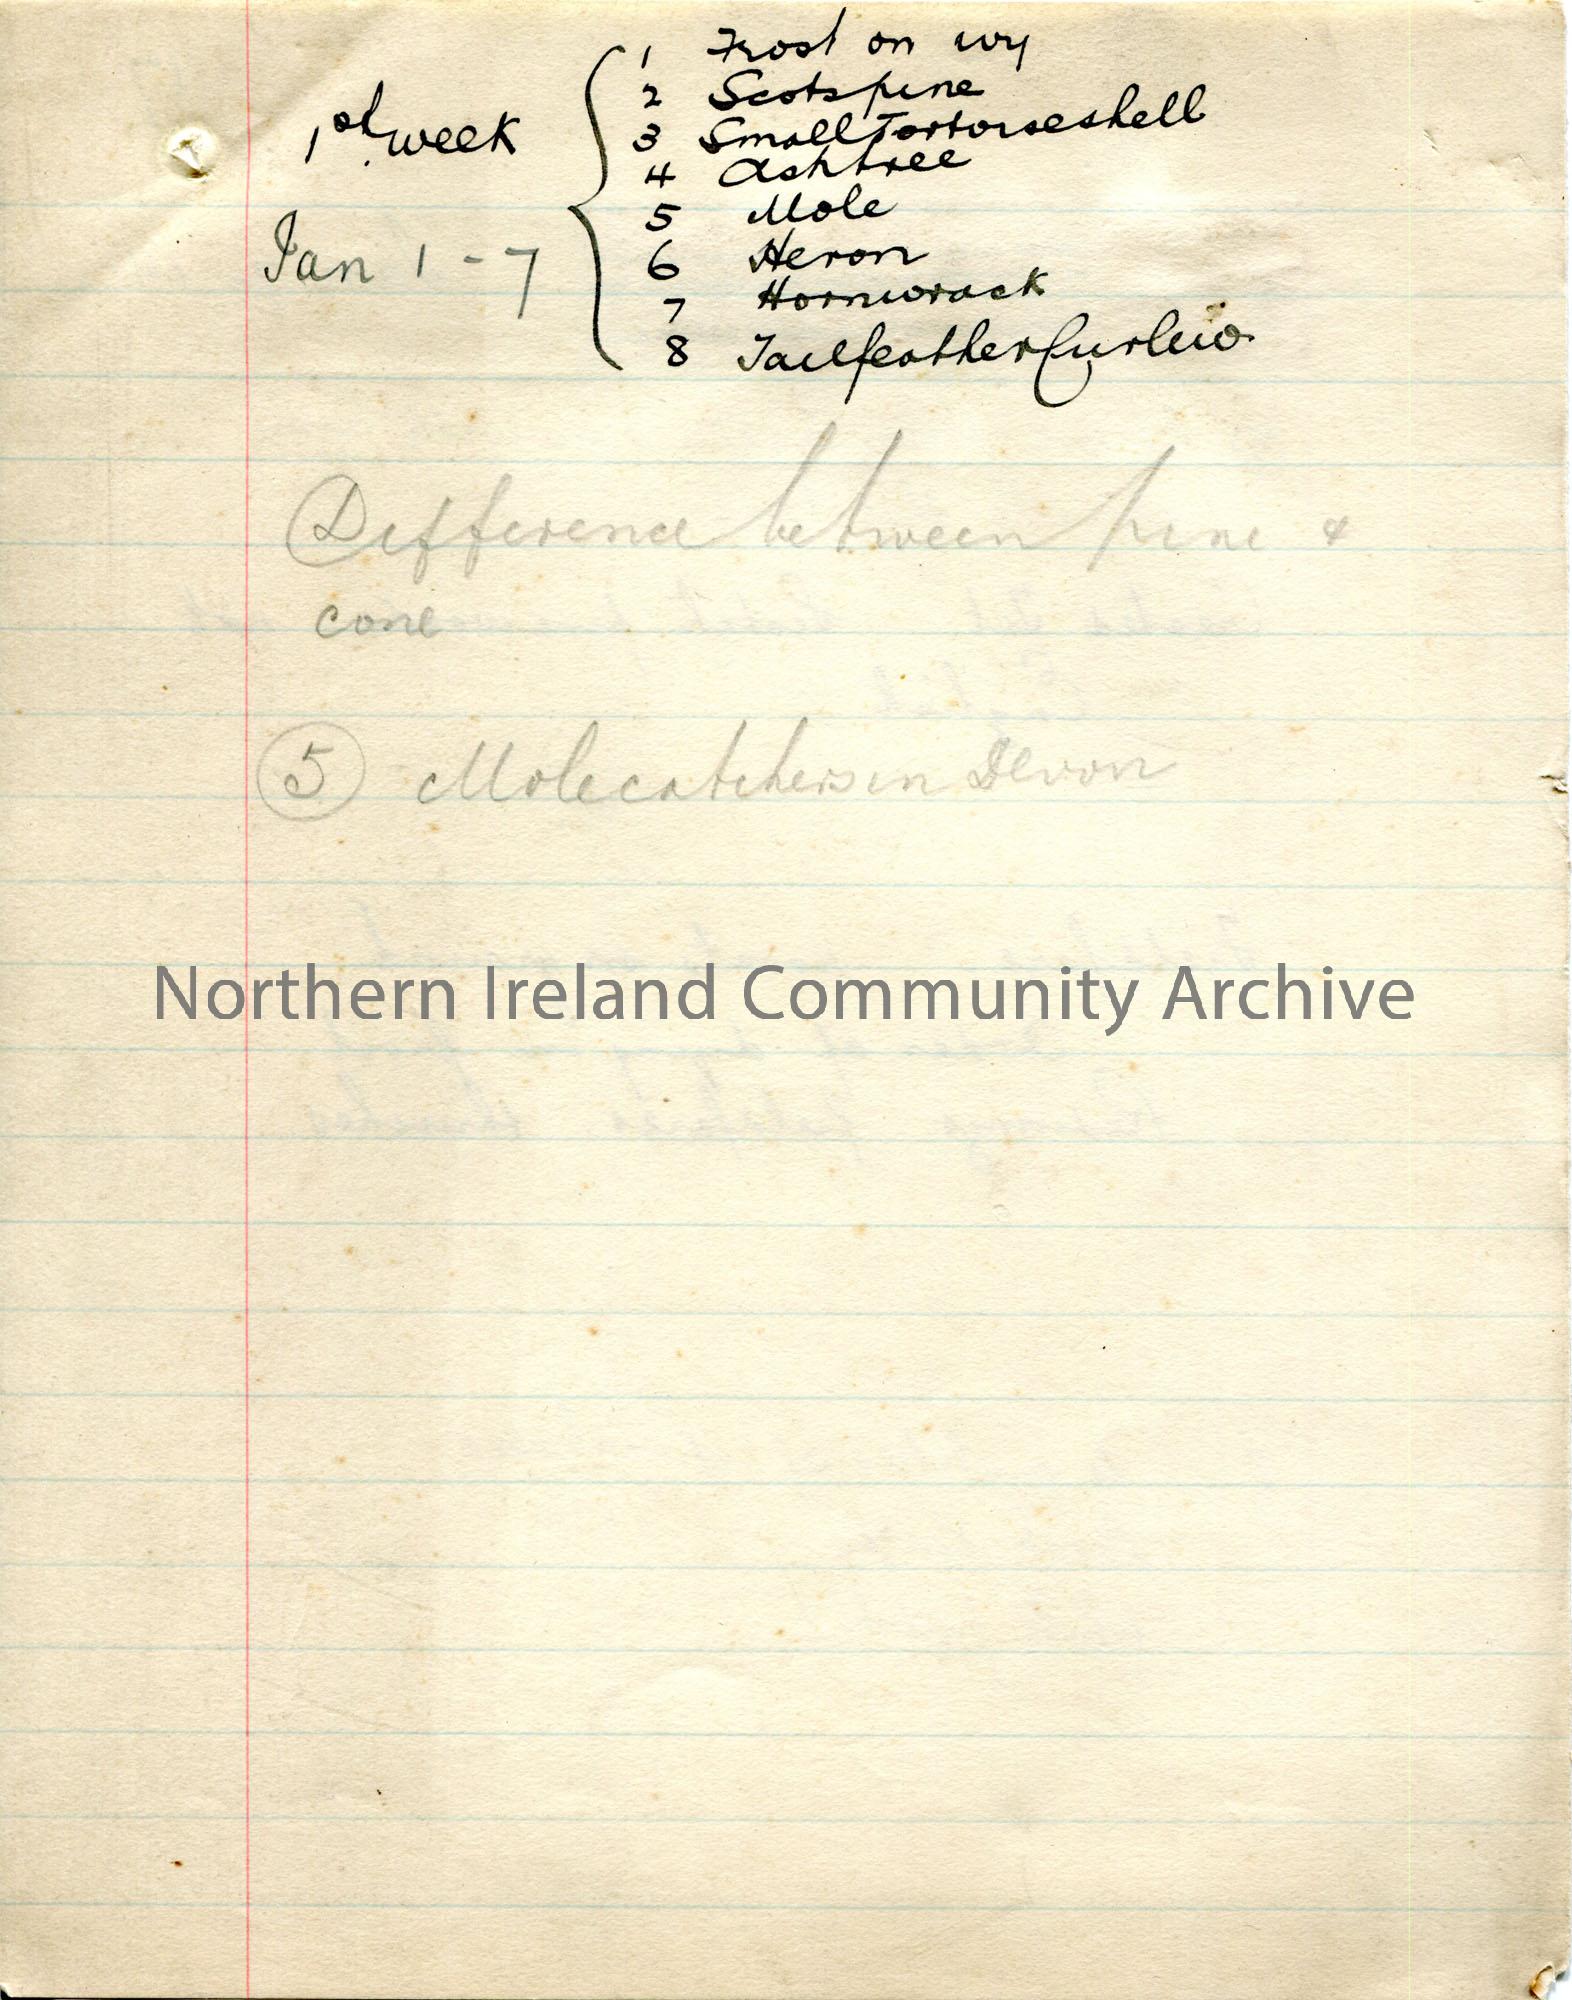 1 Frost on ivy
2 Scotspine
1st. week
3 Small Tortoiseshell
4 Ashtree
5 Mole
Jan 1 - 7
6 Heron
7 Hornwrack
8 Tailfeather Curlew
Difference between pine &
cone
5 Molecatchers in Devon
Northern Ireland Community Archive